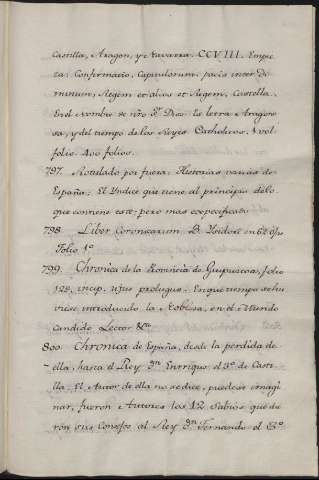 Castilla, Aragon, y Navarra. CCVIII. Empie
za: Confirmatio, Capitulorum pacis inter Do
minum, Regem et alios et Regem, Castella.
En el Nombre de nro Sr. Dios. Es letra Aragone
sa, y del tiempo de los Reyes Catholicos. 1 vol.
folio. 400 folios.
797. Rotulado por fuera: Historias varias de
España: El Yndice que tiene al principio delo
que contiene este; pero mas expecificado
798. Liber Coronicarum B. Ysidori en 62 Ojs
Folio 1º
799. Chronica de la Provincia de Guipuzcoa, folio
128, incip. Ujus prologus: En que tiempo se hu
viese introducido la Nobleza, en el Mundo
Candido Lector &ca
800. Chronica de España, desde la perdida de
ella, hasta el Rey Dn Enrrique el 3º de Casti
lla. El Autor de ella no se dice, puedese imagi
nar, fueron Autores los 12 Sabios que die
ron sus Consejos al Rey Dn Fernando el 3º